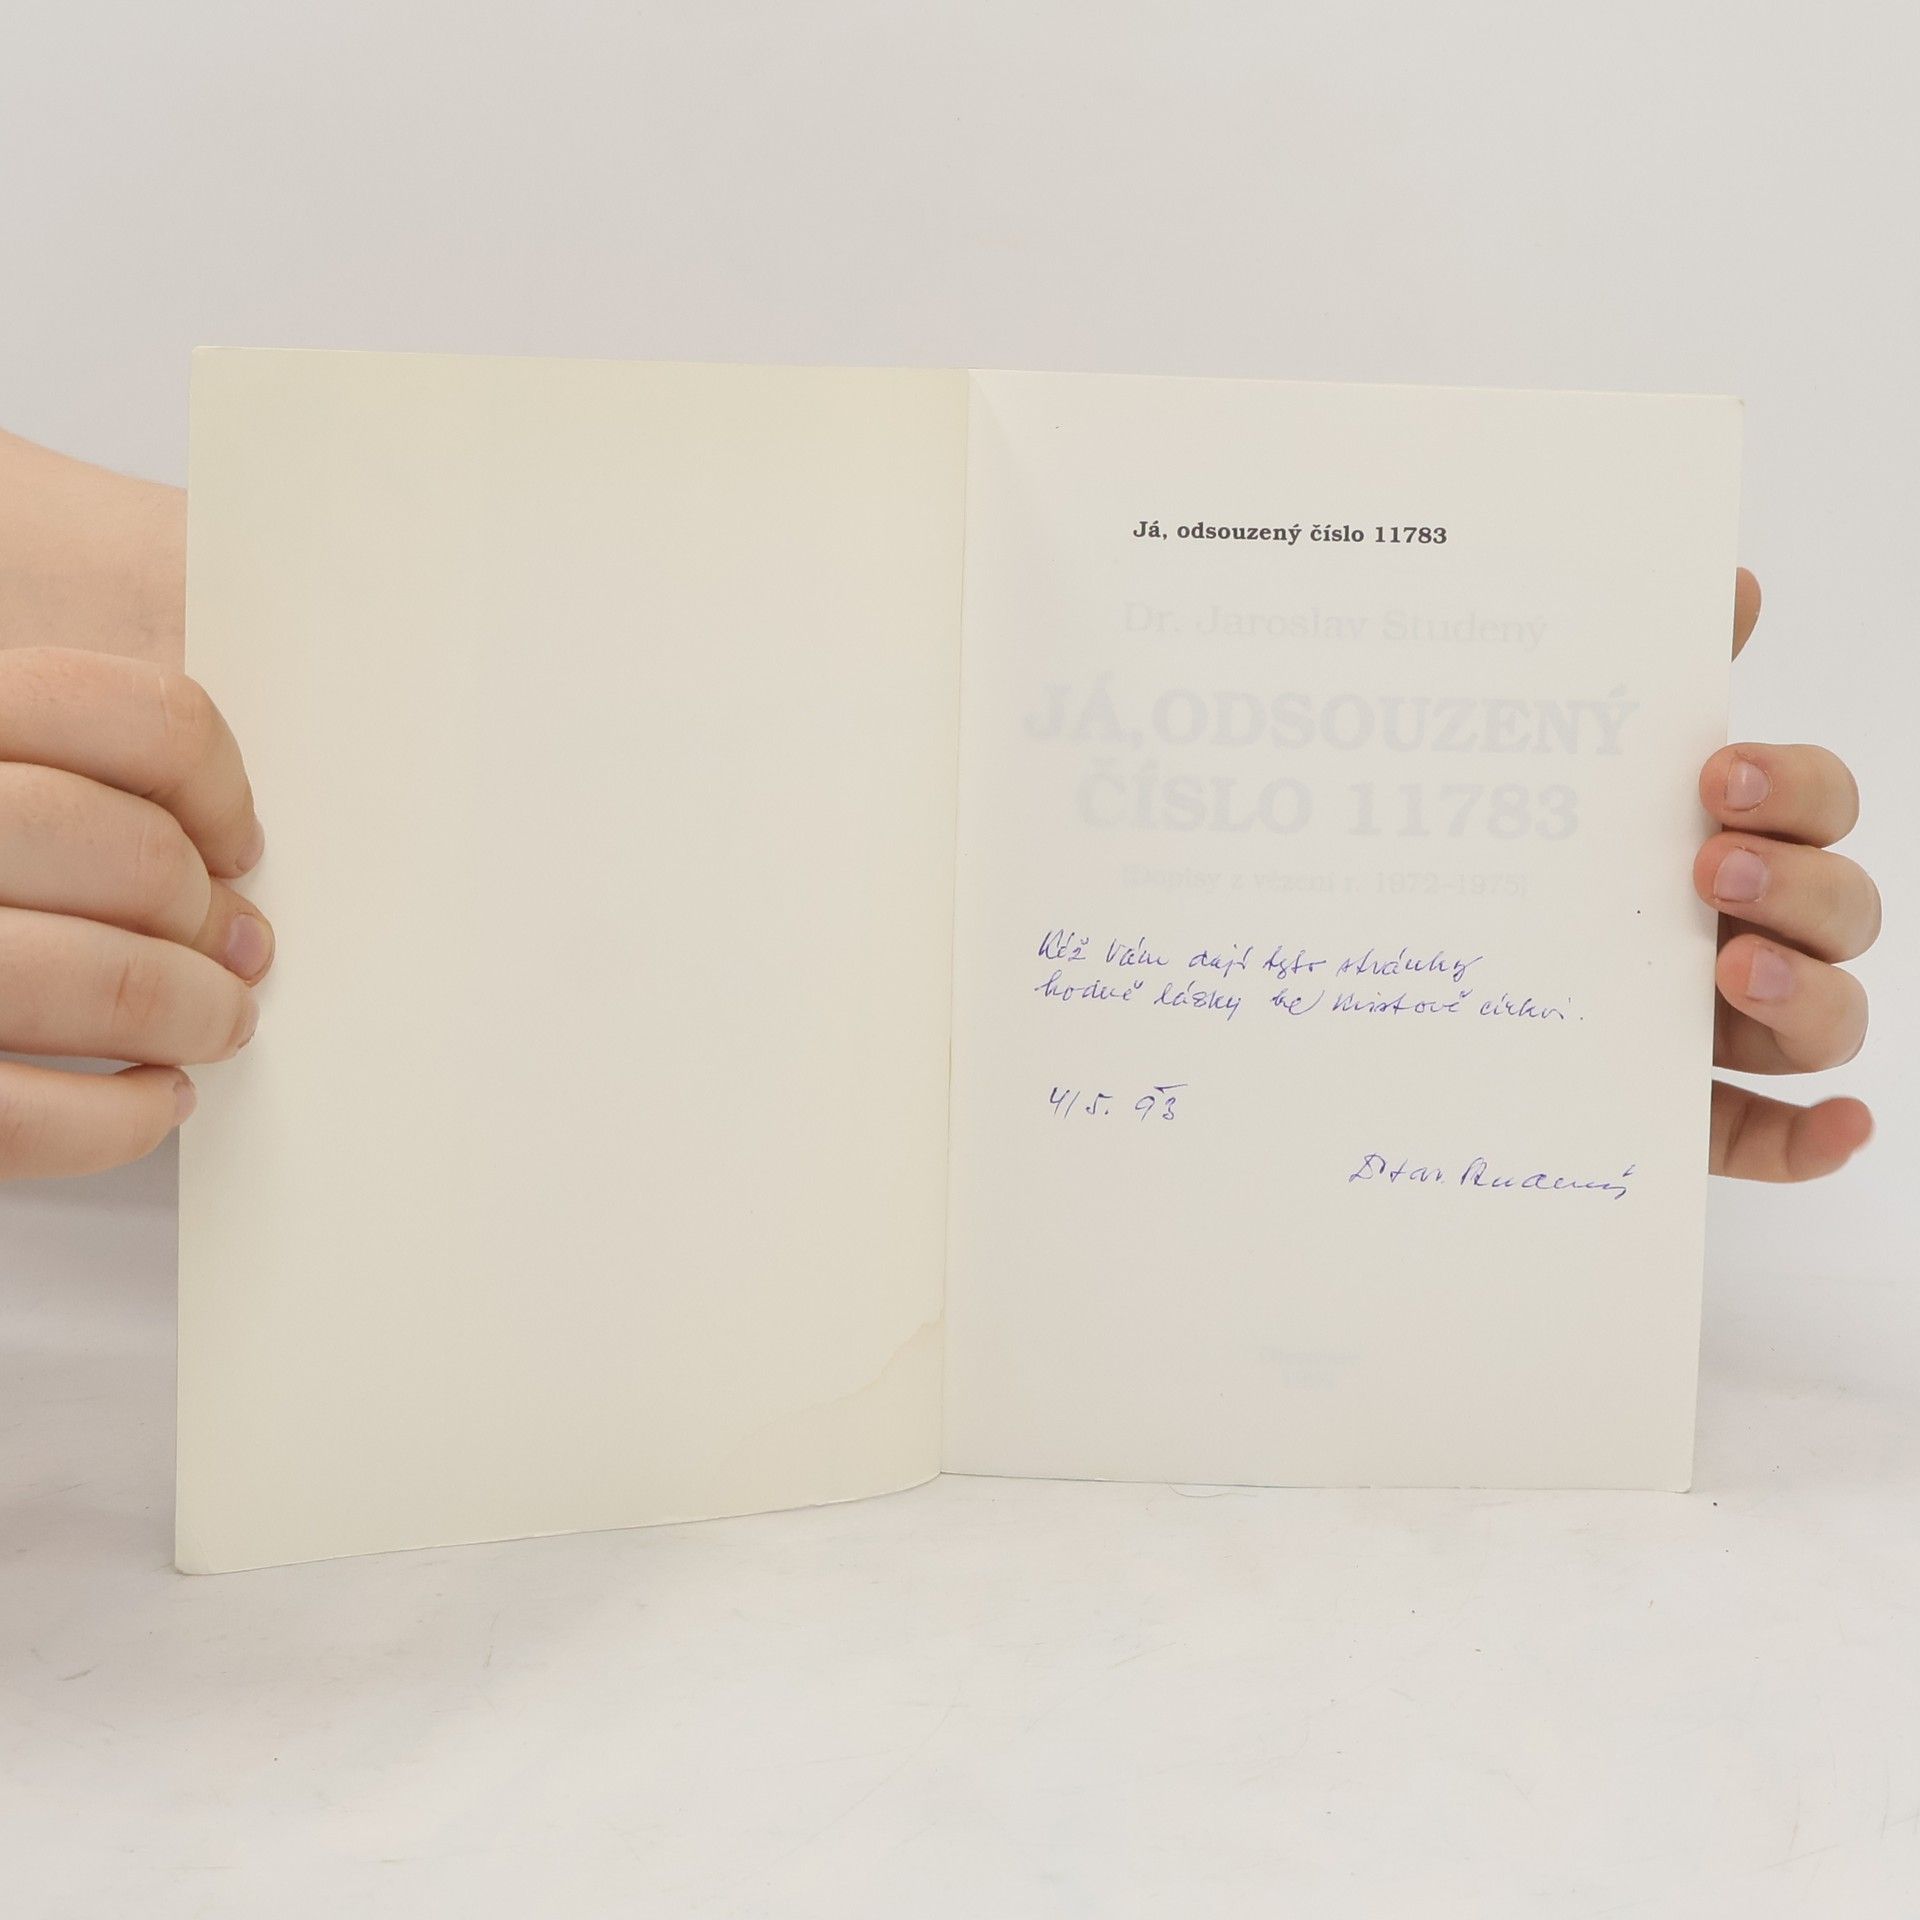 Já, odsouzený číslo 11783
Dr. Jaroslav Studený
JÁ, ODSOUZENÝ
ČÍSLO 11783
(Dopisy z vězení r. 1972-1975)
Kéž Vám dají tyto stránky
hodně lásky ke Kristově církvi.
4/5. 93
Dr Jar. Studený